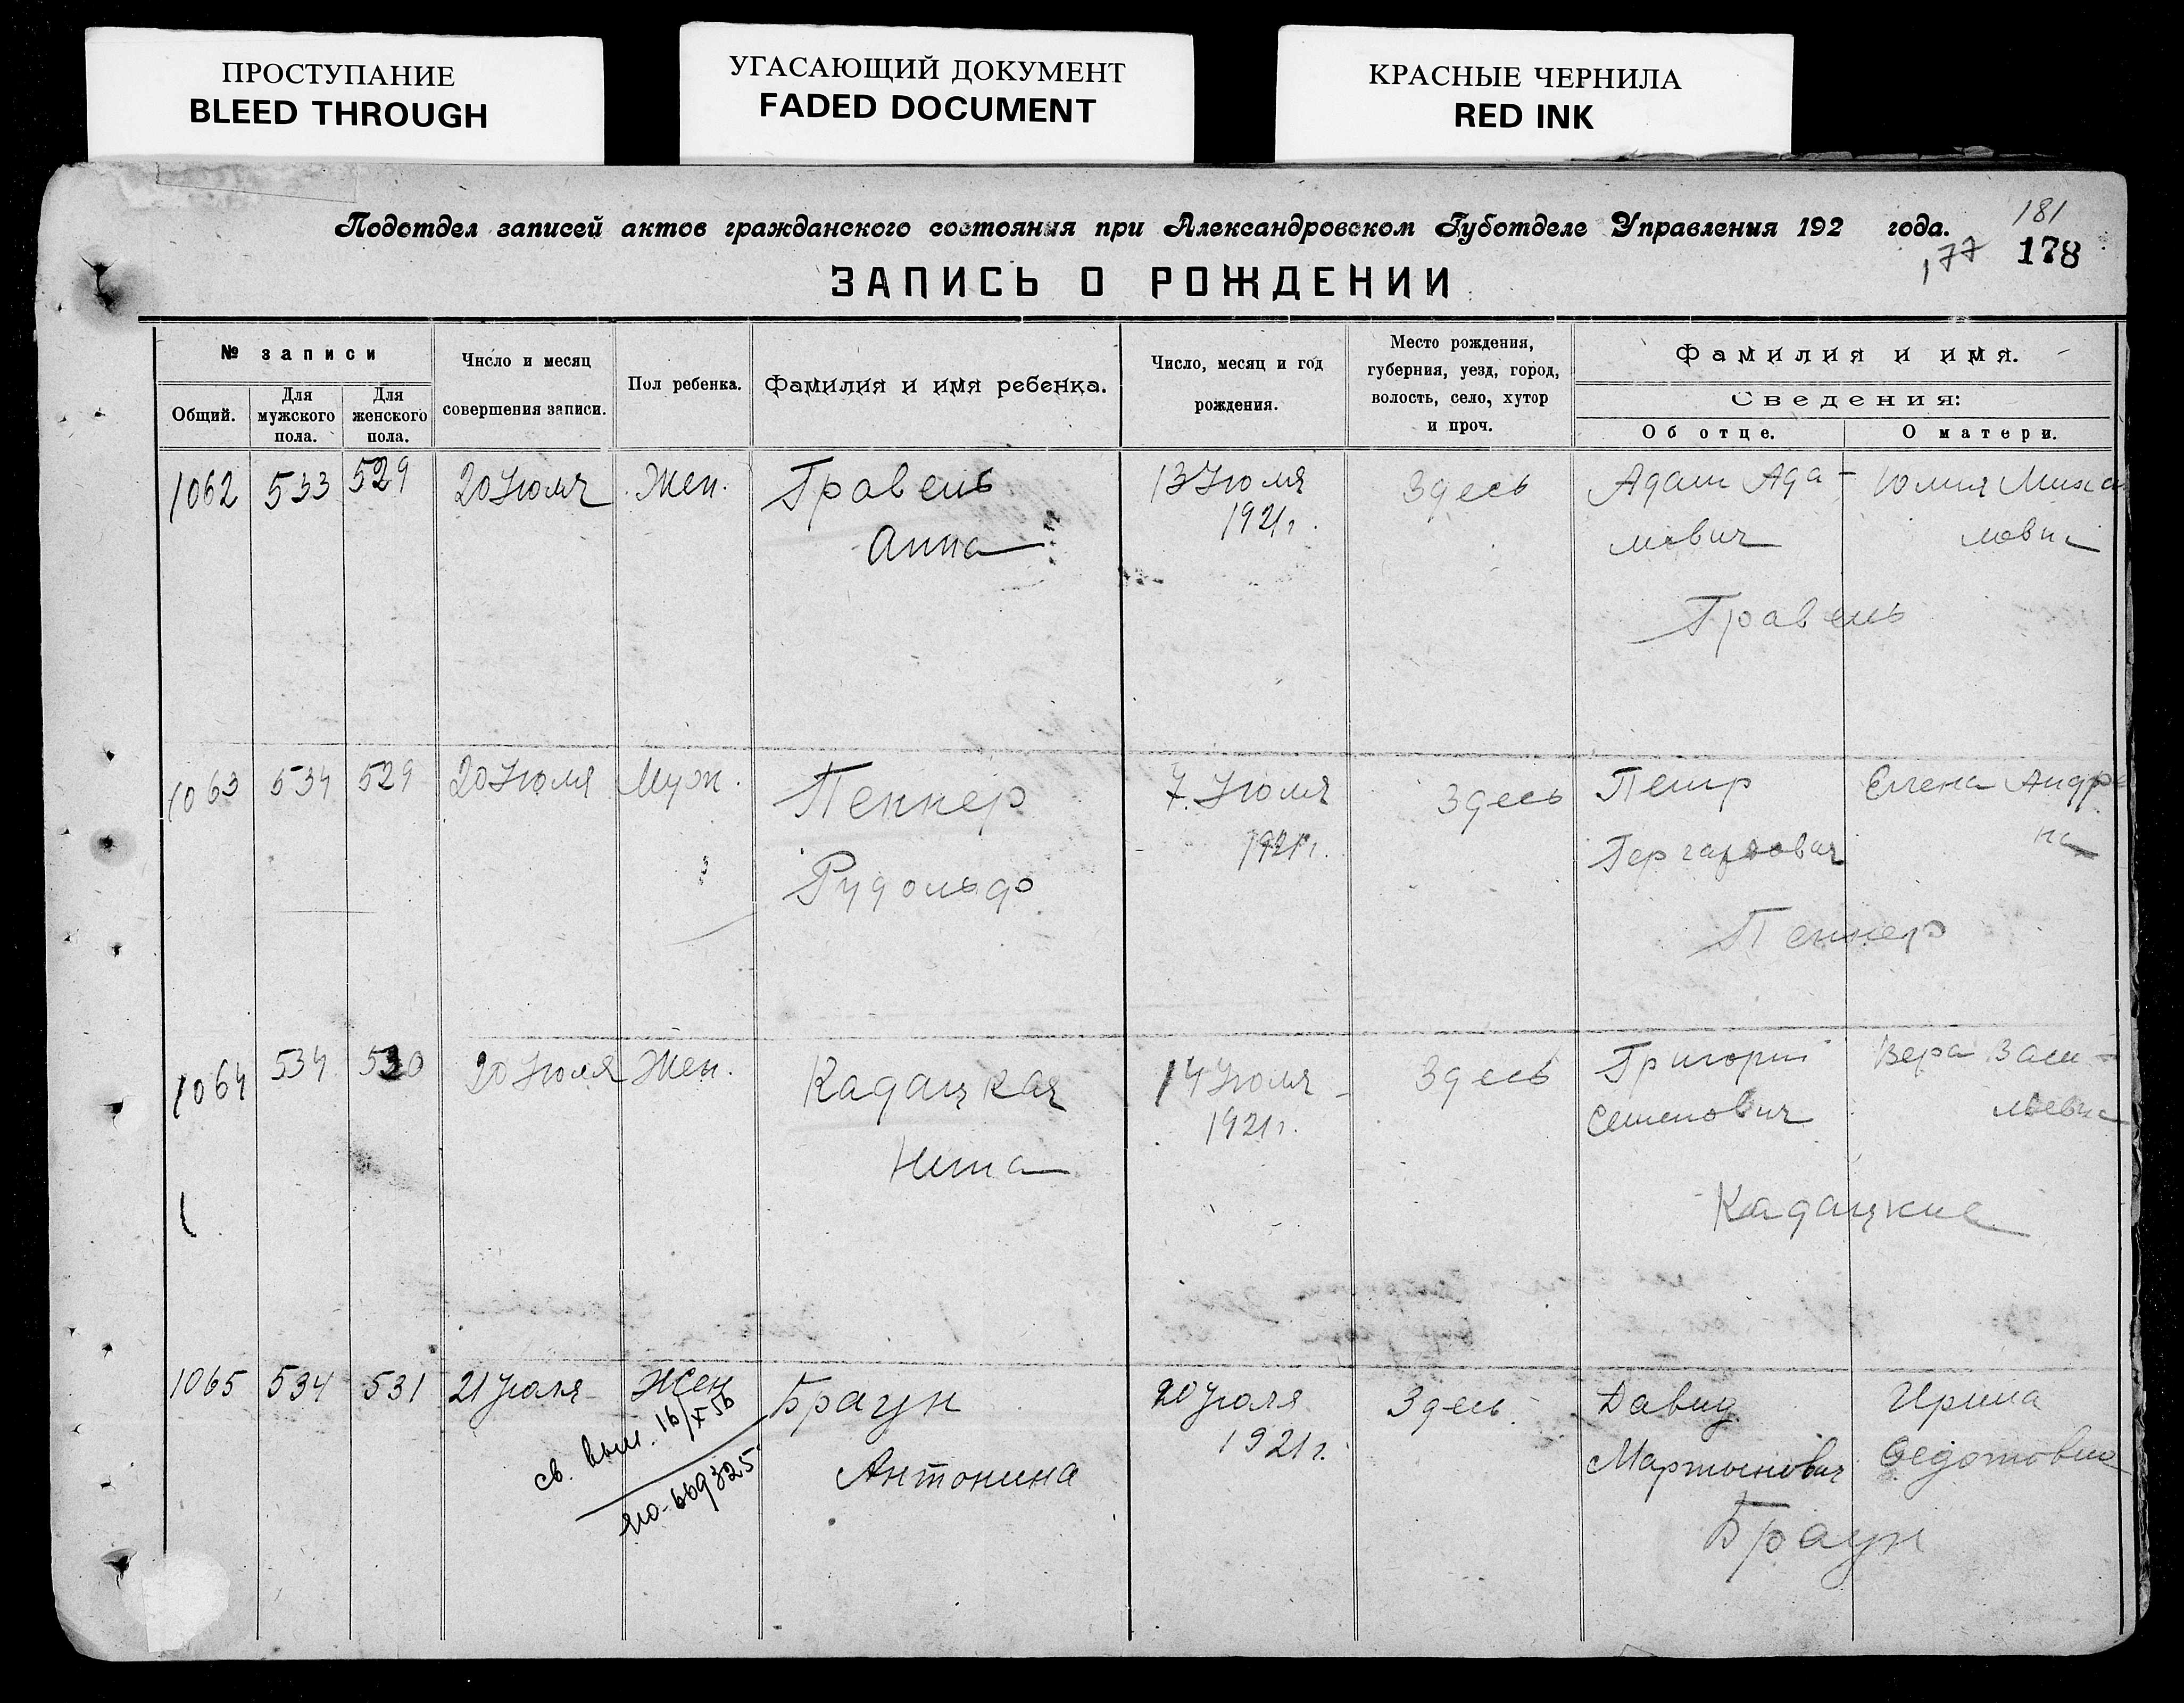 ПРОСТУПАНИЕ
BLEED THROUGH
УГАСАЮЩИЙ ДОКУМЕНТ
FADED DOCUMENT
КРАСНЫЕ ЧЕРНИЛА
RED INK
181
Подотдел записей актов гражданского состояния при Александровском Губотделе Управления 192 года.
177 178
ЗАПИСЬ О РОЖДЕНИИ
№ записи
Общий.
Для мужского пола.
Для женского пола.
Число и месяц
совершения записи.
Пол ребенка.
Фамилия и имя ребенка.
Число, месяц и год
рождения.
Место рождения,
губерния, уезд, город,
волость, село, хутор
и проч.
Фамилия и имя.
Сведения:
Об отце.
О матери.
1062 533 529 20 Июля Жен. Гравель 13 Июля Здесь Адам Ада- Юлия Михай
Анна 1921г. мович ловна
Гравель
1063 534 529 20 Июля Муж. Пеннер 7 Июля Здесь Петр Елена Андре
Рудольф 1921г. Гергардович на
Пеннер
1064 534 530 20 Июля Жен. Кадацкая 14 Июля Здесь Григорий Вера Васи-
Нина 1921г. Семенович льевна
Кадацкие
1065 534 531 21 Июля Жен Браун 20 Июля Здесь. Давид Ирина
Антонина 1921г. Мартынович Федотовна
Браун
св. вып. 16/X 56
ЯЮ-669325